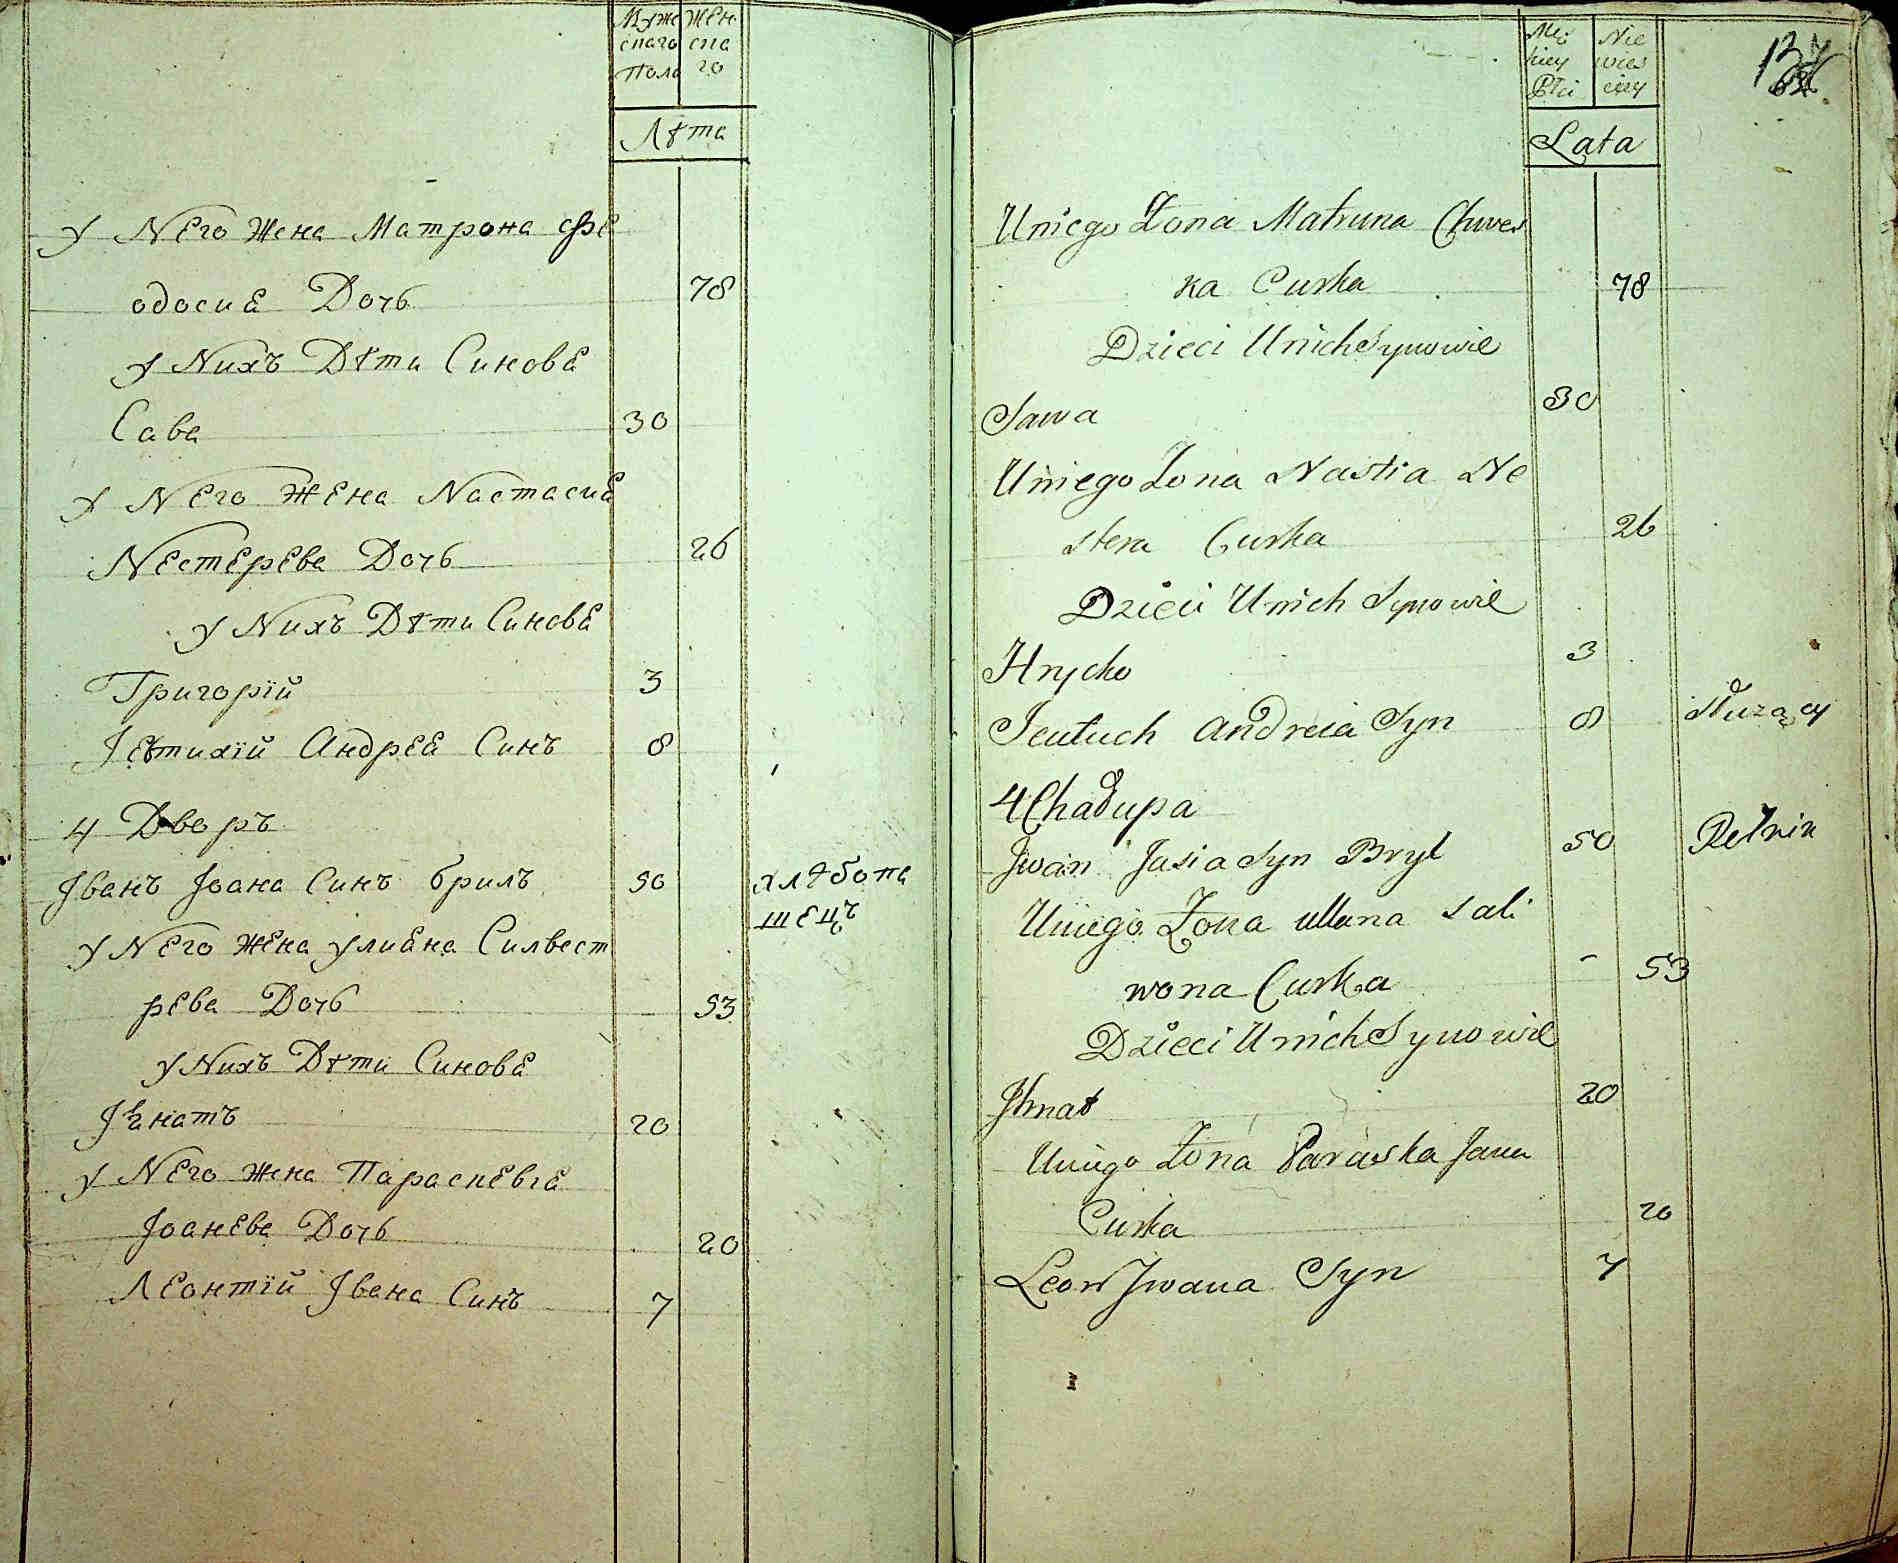 Муже Жен
скаго ска
Пола го
Лѣта
У Него Жена Матрона Фе
одосиа Дочь 78
У Нихъ Дѣти Синове
Сава 30
У Него Жена Настасиа
Нестерева Дочь 26
У Нихъ Дѣти Синове
Григорій 3
Іевтихій Андрея Синъ 8
4 Дворъ
Іванъ Іоана Синъ Брилъ 50 хлѣбопа
шецъ
У Него Жена Улиана Силвест
рева Дочь 53
У Нихъ Дѣти Синове
Ігнатъ 20
У Него Жена Параскевиа
Іоанева Дочь 20
Леонтій Івана Синъ 7
Mę Nie
kiey wies
Płci ciey
Lata
Uniego Żona Matruna Chwes
ka Curka 78
Dzieci Unich Synowie
Sawa 30
Uniego Żona Nastia Ne
stera Curka 26
Dzieci Unich Synowie
Hrycko 3
Jeutuch Andreia Syn 8 Służący
4 Chałupa
Jwan Jasia Syn Bryl 50 Rolnik
Uniego Żona Ullana Sali
wona Curka - 53
Dzieci Unich Synowie
Jhnat 20
Uniego Żona Paraska Jana
Curka 20
Leon Jwana Syn 7